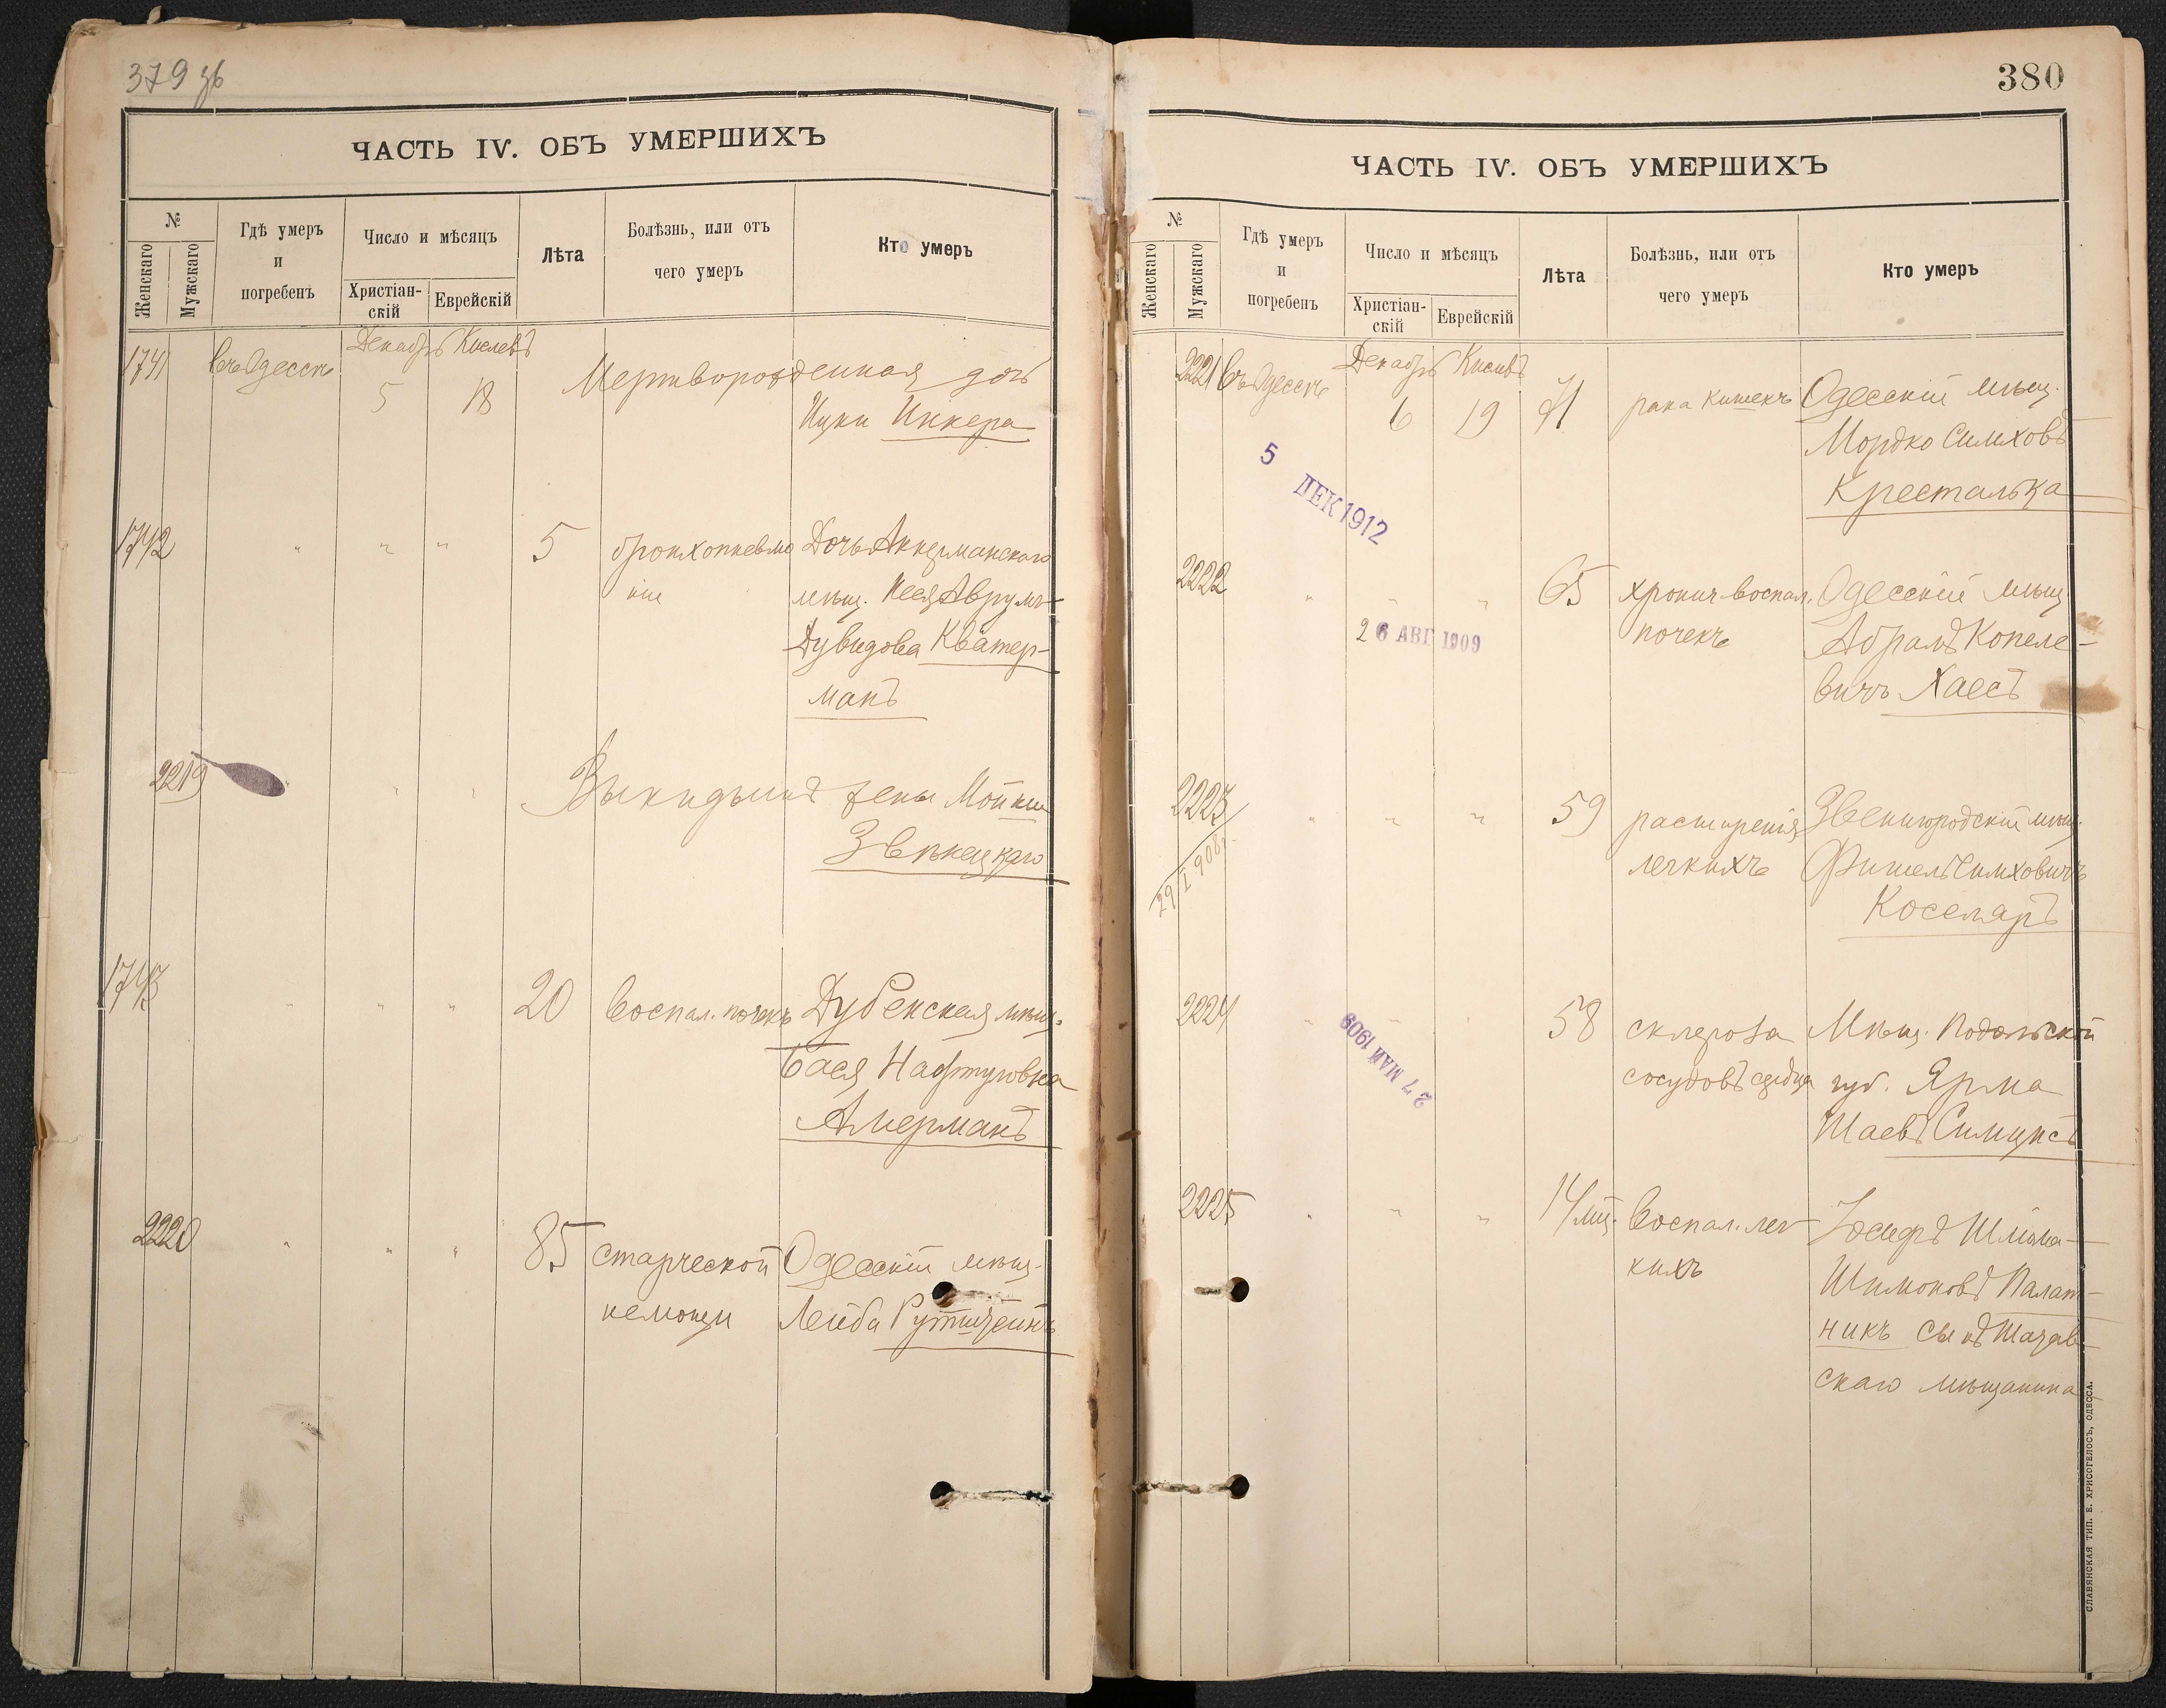 379 зв
ЧАСТЬ IV. ОБЪ УМЕРШИХЪ
№
Женскаго
Мужскаго
Гдѣ умеръ
и
погребенъ
Число и мѣсяцъ
Христіан-
скій
Еврейскій
Лѣта
Болѣзнь, или отъ
чего умеръ
Кто умеръ
Декабрь Кислевъ
1741 въ Одессѣ 5 18 Мертворожденная дочь
Ицки Инкера
1742 " " " 5 бронхопневмо Дочь Аккерманскаго
ніи мѣщ. Песя Аврумъ
Дувидова Кватер-
манъ
2219 " " " Выкидышъ жены Мошки
Звенецкаго
1743 " " " 20 Воспал. почекъ Дубенская мѣщ.
Бася Нафтуловна
Амерманъ
2220 " " " 85 старческой Одесскій мѣщ.
немощи Лейба Рутштейнъ
380
ЧАСТЬ IV. ОБЪ УМЕРШИХЪ
№
Женскаго
Мужскаго
Гдѣ умеръ
и
погребенъ
Число и мѣсяцъ
Христіан-
скій
Еврейскій
Лѣта
Болѣзнь, или отъ
чего умеръ
Кто умеръ
Декабрь Кислевъ
2221 въ Одессѣ 6 19 71 рака кишекъ Одесскій мѣщ.
Мордко Симховъ
Кресталька
5 ДЕК 1912
2222 " " " 65 хронич. воспал. Одесскій мѣщ
почекъ Абрамъ Копеле-
вичъ Хаесъ
26 АВГ 1909
2223 " " " 59 расширенія Звенигородскій мѣщ.
легкихъ Фишель Симховичъ
Косемаръ
29/I 908 г.
2224 " " " 58 склероза Мѣщ. Подольской
сосудовъ сердца губ. Ярма
Шаевъ Симцисъ
27 МАЙ 1909
2225 " " " 14 мц. Воспал. лег Іосифъ Шлёма-
кихъ Шимоновъ Палат-
никъ сынъ
скаго мѣщанина
СЛАВЯНСКАЯ ТИП. Е. ХРИСОГЕЛОСЪ, ОДЕССА.